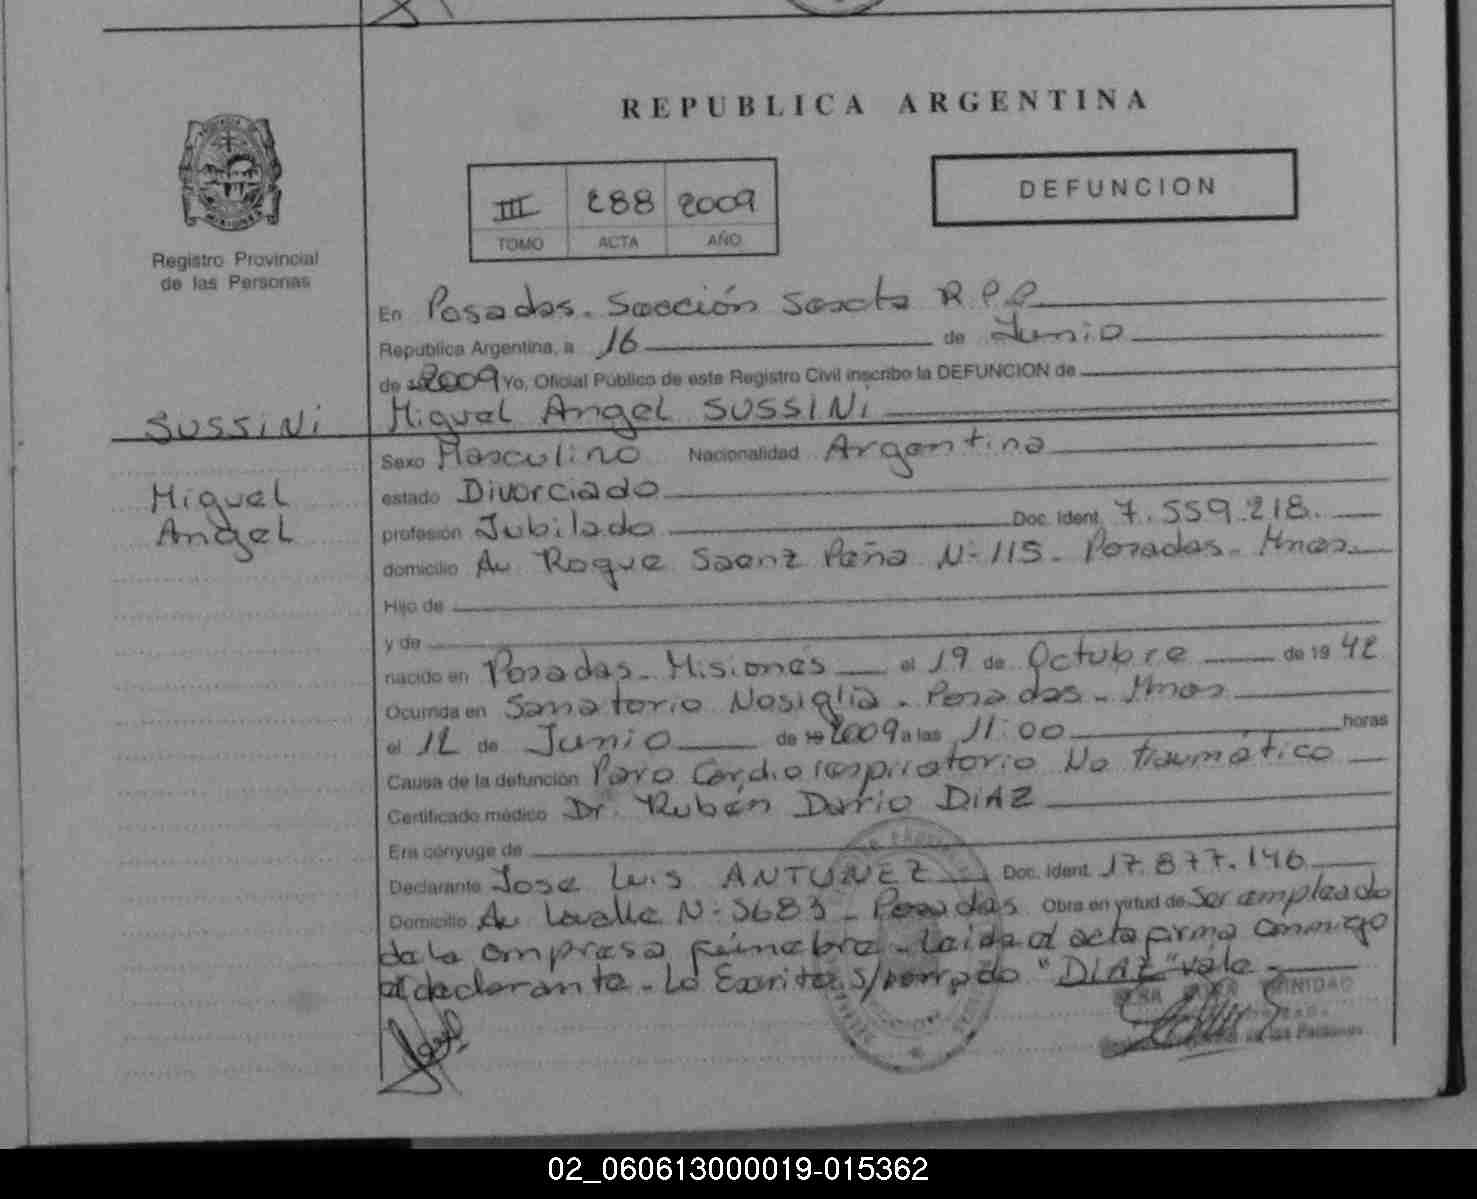 REPUBLICA ARGENTINA
III 288 2009
TOMO ACTA AÑO
DEFUNCION
Registro Provincial
de las Personas
En Posadas. Sección Sexta R.P.P
Republica Argentina, a 16 de Junio
de 2009 Yo, Oficial Público de este Registro Civil inscribo la DEFUNCION de
SUSSINI
Miguel
Angel
Miguel Angel SUSSINI
Sexo Masculino Nacionalidad Argentina
estado Divorciado
profesión Jubilado Doc. Ident. 7.559.218.
domicilio Av Roque Saenz Peña Nº 115 - Posadas - Mnes.
Hijo de
y de
nacido en Posadas - Misiones el 19 de Octubre de 1942
Ocurrida en Sanatorio Nosiglia - Posadas - Mnes
el 12 de Junio de 2009 a las 11:00 horas
Causa de la defunción Paro Cardiorespiratorio No traumático
Certificado médico Dr. Rubén Dario DIAZ
Era cónyuge de
Declarante Jose Luis ANTUNEZ Doc. Ident. 17.877.146
Domicilio Av Lavalle Nº 5683 - Posadas Obra en virtud de Ser empleado
de la empresa fúnebre - Leida el acta firma conmigo
el declarante - Lo Escrito s/borrado "DIAZ" vale -
TRINIDAD
de las Personas
02_060613000019-015362